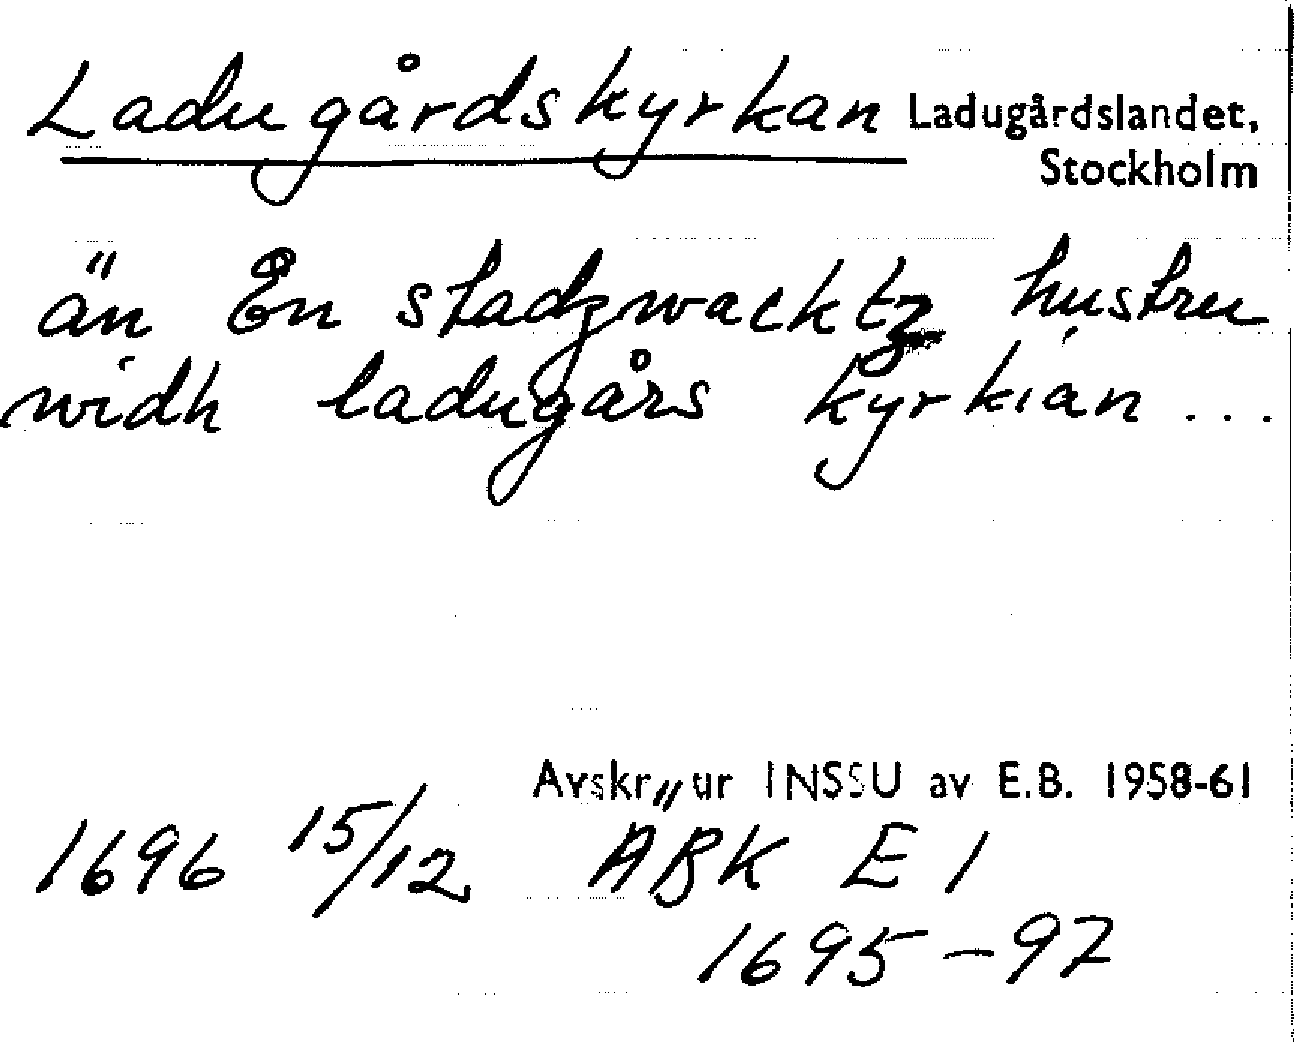 Ladugårdskyrkan Ladugårdslandet,
Stockholm
än En stadzwacktz hustru
widh ladugårs kyrkian ...
Avskr „ ur INSSU av E.B. 1958-61
1696 15/12 ABK E 1
1695-97